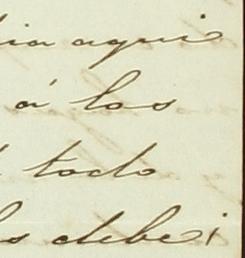 dia aqui
á los
todo
ls debei